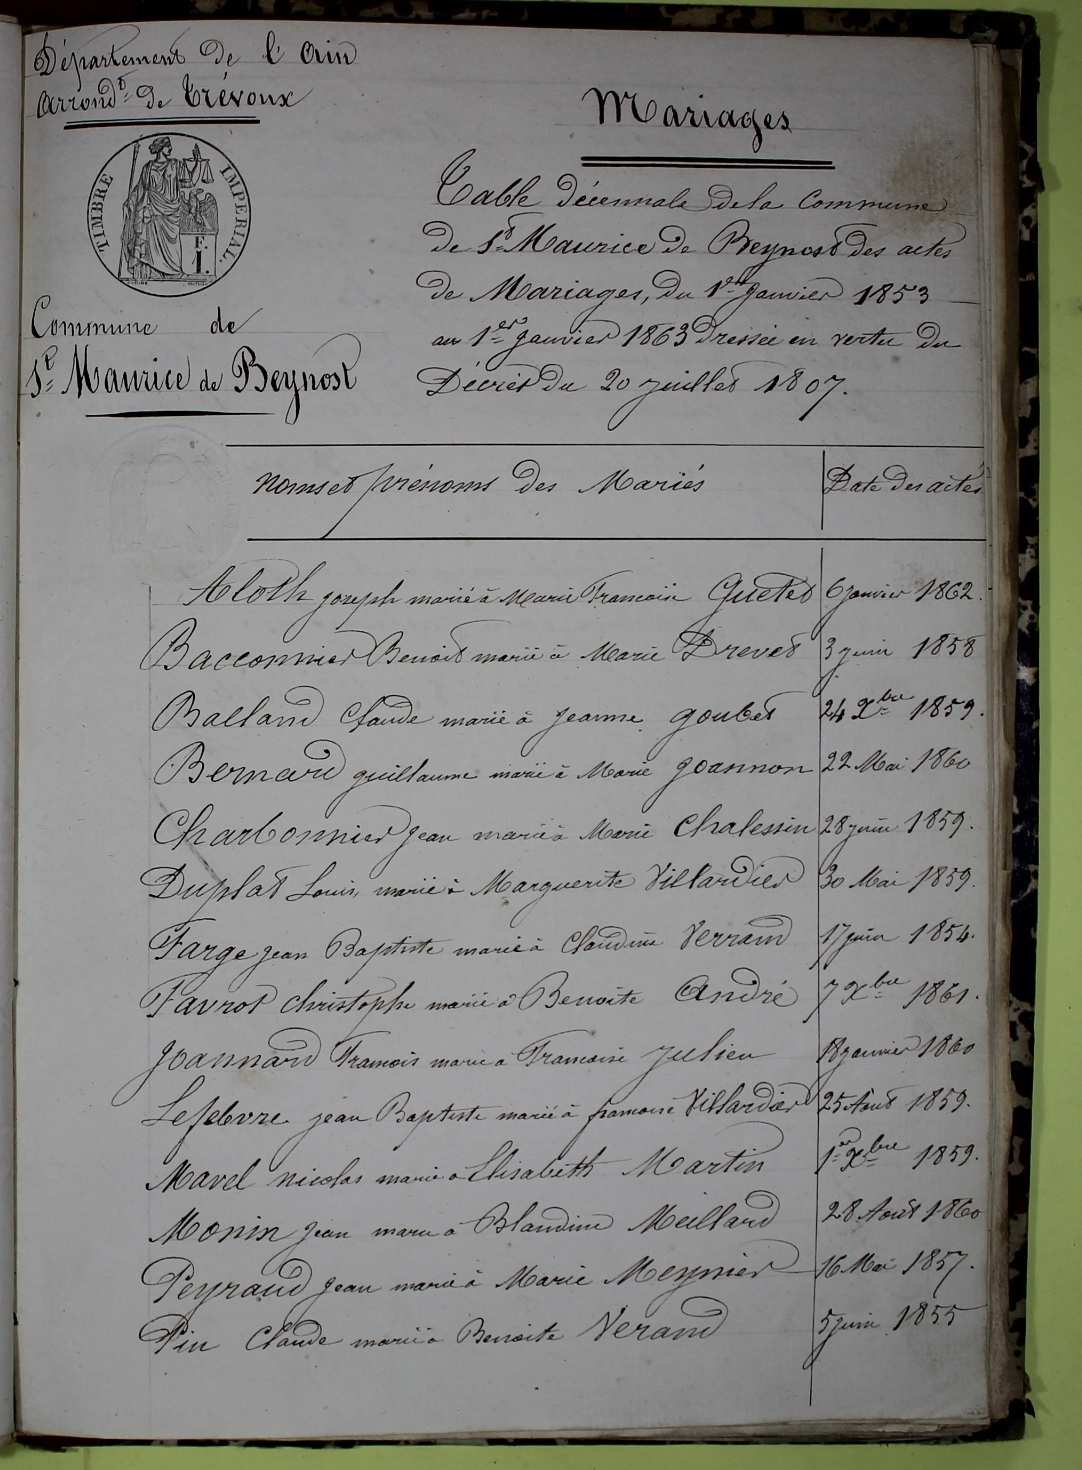 Département de l'Ain
Arrondt de Trévoux
TIMBRE IMPERIAL.
Commune de
St Maurice de Beynost
Mariages
Table décennale de la Commune
de St Maurice de Beynost des actes
de Mariages, du 1er Janvier 1853
au 1er Janvier 1863 dressée en vertu du
Décret du 20 juillet 1807.
Noms et prénoms des Mariés Date des actes
Aloth joseph marié à Marie Francoise Guetet 6 janvier 1862.
Bacconnier Benoit marié à Marie Drevet 3 juin 1858
Balland Claude marié à Jeanne Goubet 24 Xbre 1859.
Bernard guillaume marié à Marie Joannon 22 Mai 1860
Charbonnier Jean marié à Marie Chalessin 28 juin 1859.
Duplat Louis, marié à Marguerite Villardier 30 Mai 1859.
Farge jean Baptiste marié à Claudine Verrand 17 juin 1854.
Favrot Christophe marié à Benoite André 7 Xbre 1861.
Joannard Francois marié à Francoise Julien 18 janvier 1860
Lefebvre jean Baptiste marié à francoise Villardier 25 Aout 1859.
Mavel nicolas marié à Elisabeth Martin 1er Xbre 1859.
Monin Jean marié à Blandine Meillard 28 Août 1860
Peyraud Jean marié à Marie Meynier 16 Mai 1857.
Pin Claude marié à Benoite Verand 5 juin 1855